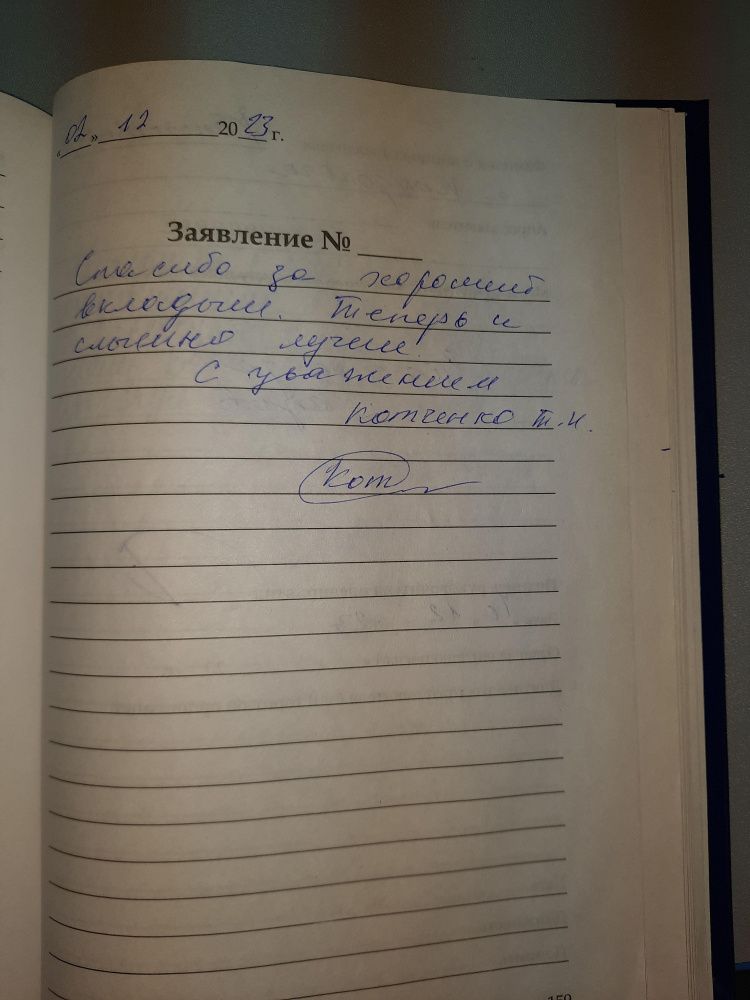 «02» 12 2023 г.
Заявление №
Спасибо за хороший
вкладыш. Теперь и
слышно лучше.
С уважением
Котченко Т.И.
Кот
159